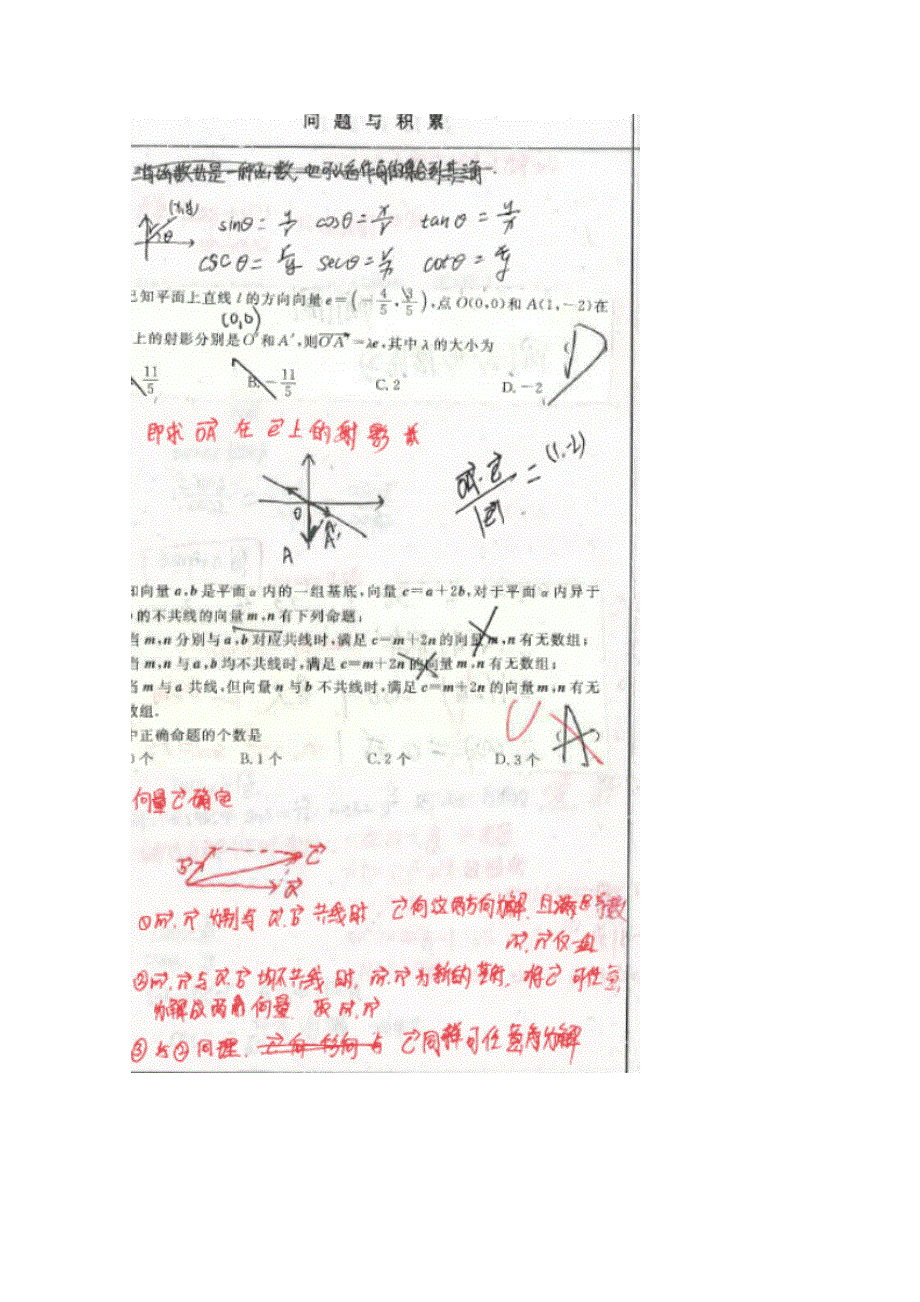 问题与积累
sinθ = y/r cosθ = x/r tanθ = y/x
cscθ = r/y secθ = r/x cotθ = x/y
已知平面上直线 l 的方向向量 e=(-4/5, 3/5),点 O(0,0)和 A(1,-2)在
(0,0)
上的射影分别是 O′和 A′,则O′A′=λe,其中 λ 的大小为
11/5 B. -11/5 C. 2 D. -2
即求 OA 在 e 上的射影
OA·e/|e| = (1,-2)
O
A A′
知向量 a,b 是平面 α 内的一组基底,向量 c=a+2b,对于平面 α 内异于
的不共线的向量 m,n 有下列命题:
当 m,n 分别与 a,b 对应共线时,满足 c=m+2n 的向量 m,n 有无数组;
当 m,n 与 a,b 均不共线时,满足 c=m+2n 的向量 m,n 有无数组;
当 m 与 a 共线,但向量 n 与 b 不共线时,满足 c=m+2n 的向量 m,n 有无
数组.
中正确命题的个数是
0 个 B. 1 个 C. 2 个 D. 3 个
向量 c 确定
b c
a
①m, n 分别与 a, b 共线时, c 向这两方向分解, 且满足
m, n 仅一组
②m, n 与 a, b 均不共线时, m, n 为新的基底, 将 c 可任意
分解成两角向量 取 m, n
③与②同理, c 同样可任意角分解